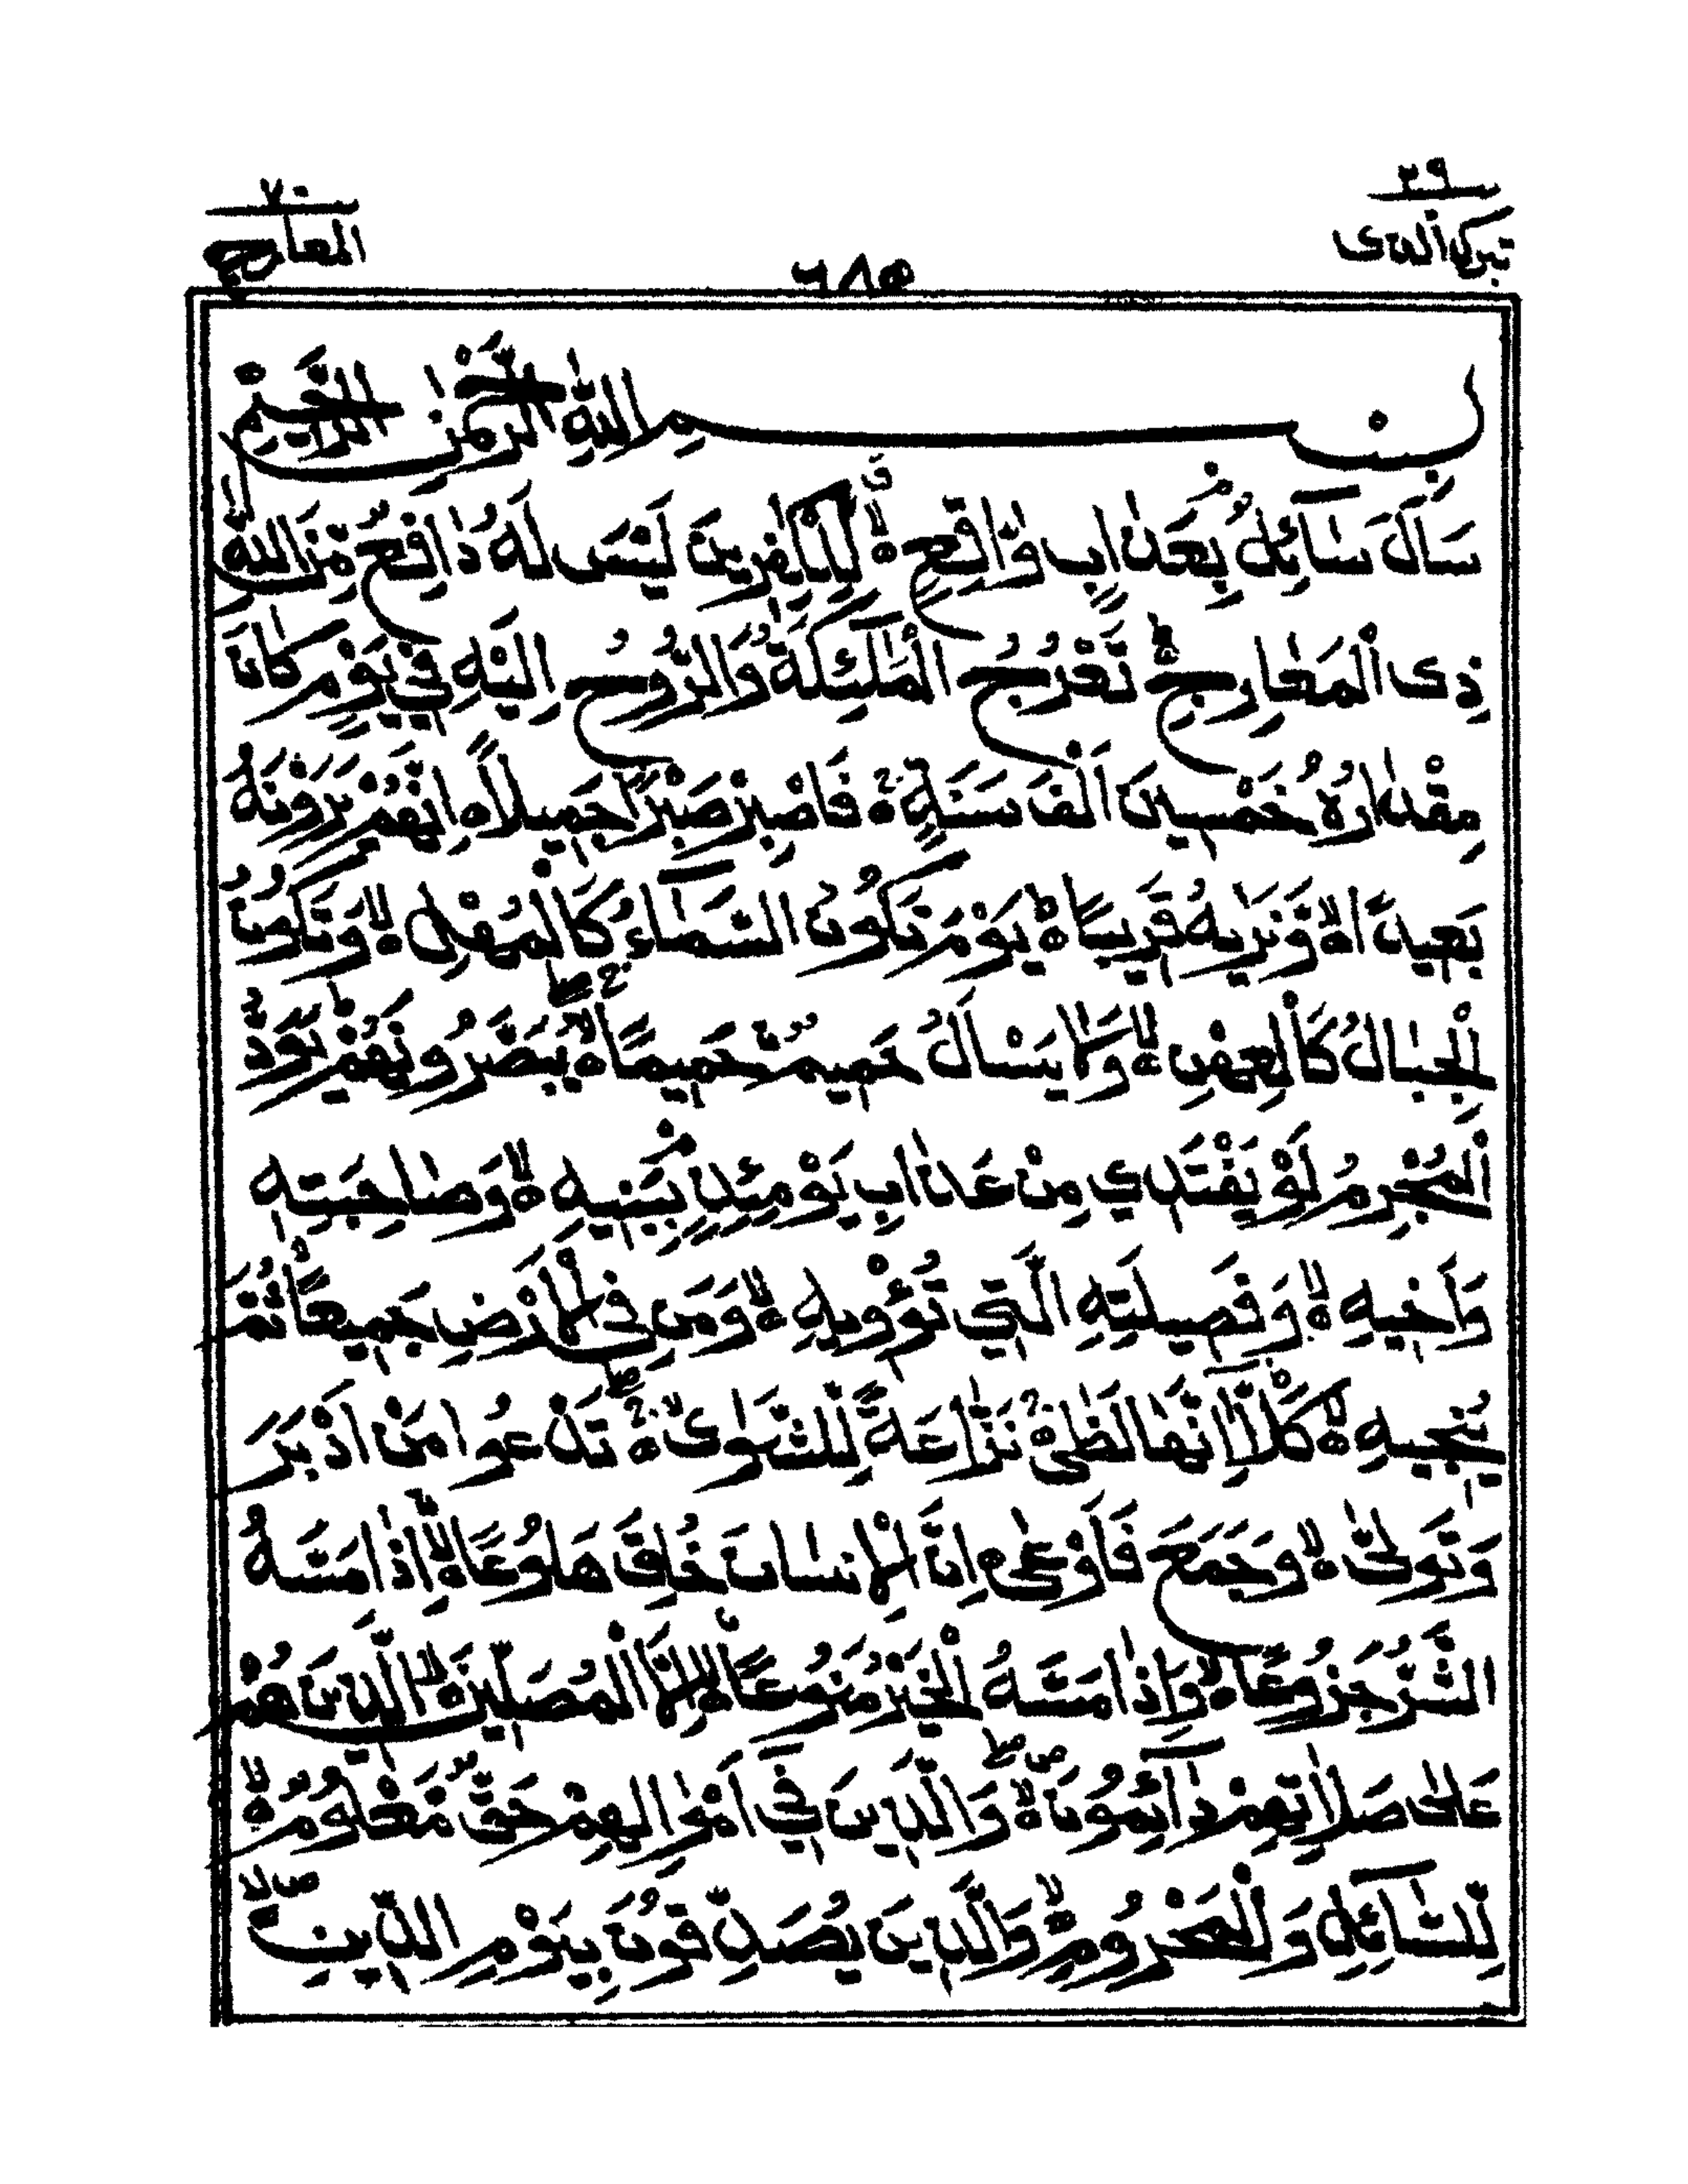 ٢٩
تبرك الذى
٦٨٥
٧٠
المعارج
بِسْمِ اللّٰهِ الرَّحْمٰنِ الرَّحِيْمِ
سَاَلَ سَآئِلٌۢ بِعَذَابٍ وَّاقِعٍ ۙ لِّلْكٰفِرِيْنَ لَيْسَ لَهٗ دَافِعٌ ۙ مِّنَ اللّٰهِ
ذِى الْمَعَارِجِ ؕ تَعْرُجُ الْمَلٰٓئِكَةُ وَالرُّوْحُ اِلَيْهِ فِيْ يَوْمٍ كَانَ
مِقْدَارُهٗ خَمْسِيْنَ اَلْفَ سَنَةٍ ۚ فَاصْبِرْ صَبْرًا جَمِيْلًا ۝ اِنَّهُمْ يَرَوْنَهٗ
بَعِيْدًا ۙ وَّنَرٰىهُ قَرِيْبًا ؕ يَوْمَ تَكُوْنُ السَّمَآءُ كَالْمُهْلِ ۙ وَتَكُوْنُ
الْجِبَالُ كَالْعِهْنِ ۙ وَلَا يَسْـَٔلُ حَمِيْمٌ حَمِيْمًا ۚۖ يُّبَصَّرُوْنَهُمْ ؕ يَوَدُّ
الْمُجْرِمُ لَوْ يَفْتَدِيْ مِنْ عَذَابِ يَوْمِئِذٍۢ بِبَنِيْهِ ۙ وَصَاحِبَتِهٖ
وَاَخِيْهِ ۙ وَفَصِيْلَتِهِ الَّتِيْ تُـْٔوِيْهِ ۙ وَمَنْ فِى الْاَرْضِ جَمِيْعًا ۙ ثُمَّ
يُنْجِيْهِ ۙ كَلَّا ؕ اِنَّهَا لَظٰى ۙ نَزَّاعَةً لِّلشَّوٰى ۚۖ تَدْعُوْا مَنْ اَدْبَرَ
وَتَوَلّٰى ۙ وَجَمَعَ فَاَوْعٰى ۝ اِنَّ الْاِنْسَانَ خُلِقَ هَلُوْعًا ۙ اِذَا مَسَّهُ
الشَّرُّ جَزُوْعًا ۙ وَّاِذَا مَسَّهُ الْخَيْرُ مَنُوْعًا ۙ اِلَّا الْمُصَلِّيْنَ ۙ الَّذِيْنَ هُمْ
عَلٰى صَلَاتِهِمْ دَآئِمُوْنَ ۪ۙ وَالَّذِيْنَ فِيْٓ اَمْوَالِهِمْ حَقٌّ مَّعْلُوْمٌ ۙ
لِّلسَّآئِلِ وَالْمَحْرُوْمِ ۙ وَالَّذِيْنَ يُصَدِّقُوْنَ بِيَوْمِ الدِّيْنِ ۙ